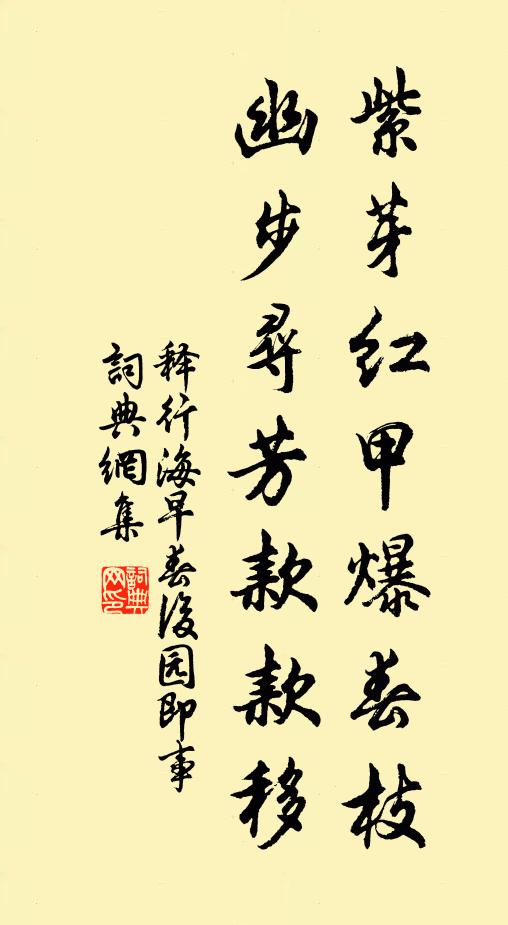 紫芽红甲爆春枝
幽步尋芳款款移
释行海早春後园即事
詞典網集
詞典
网印